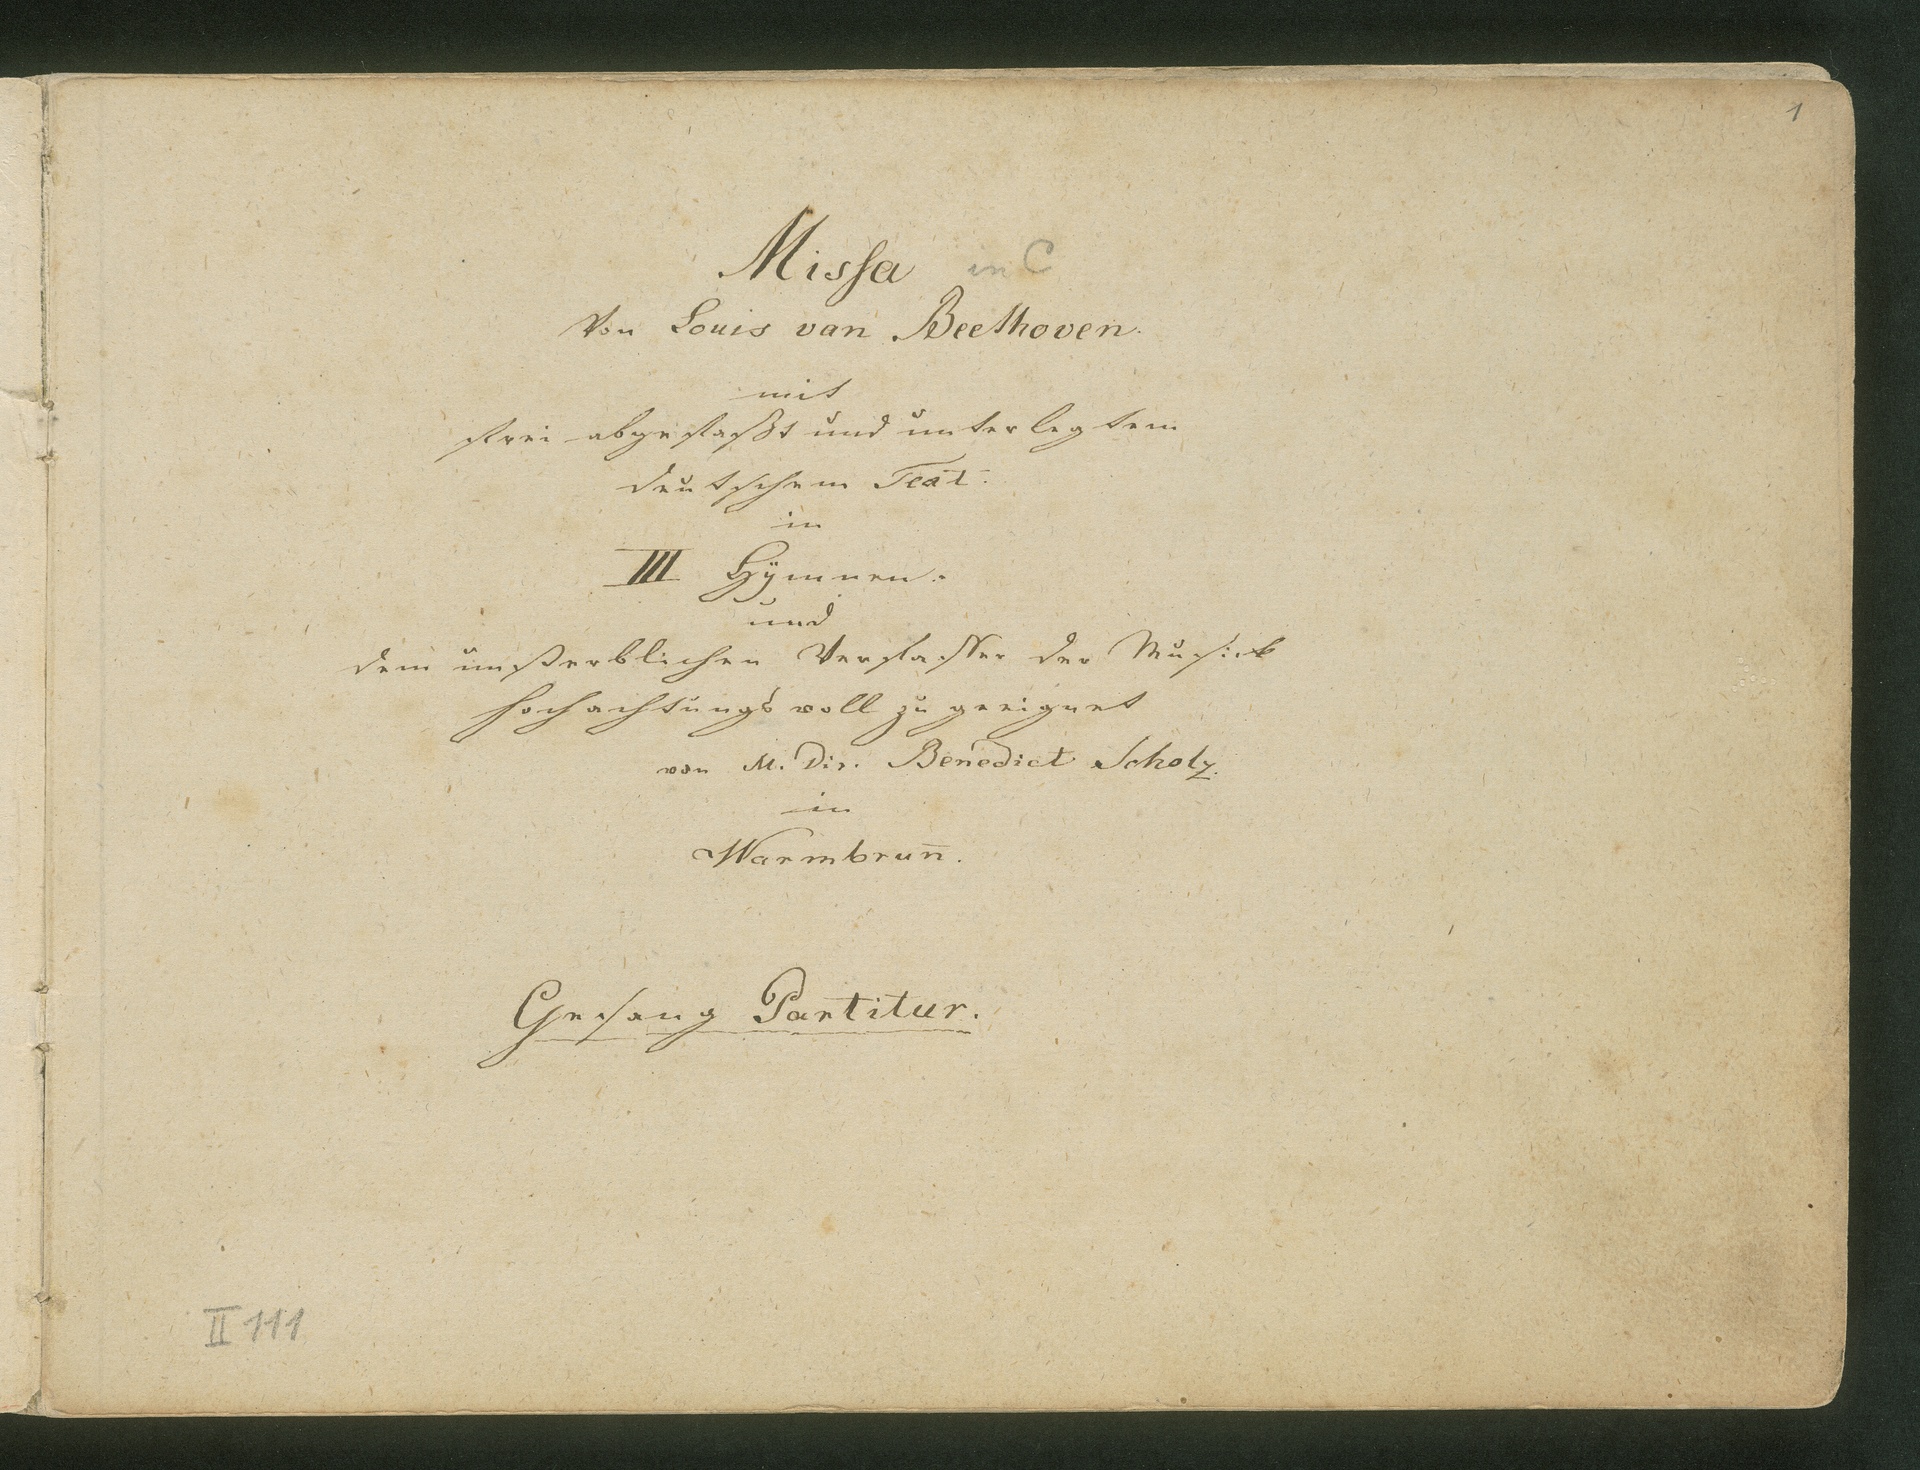 1
Missa in C
Von Louis van Beethoven.
mit
frei abgefaßt und unterlegtem
deutschem Text.
in
III Hÿmnen.
und
dem unsterblichen Verfasser der Musick
hochachtungsvoll zu geeignet
von M. Dir. Benedict Scholz.
in
Warmbrun̄.
Gesang Partitur.
II 111